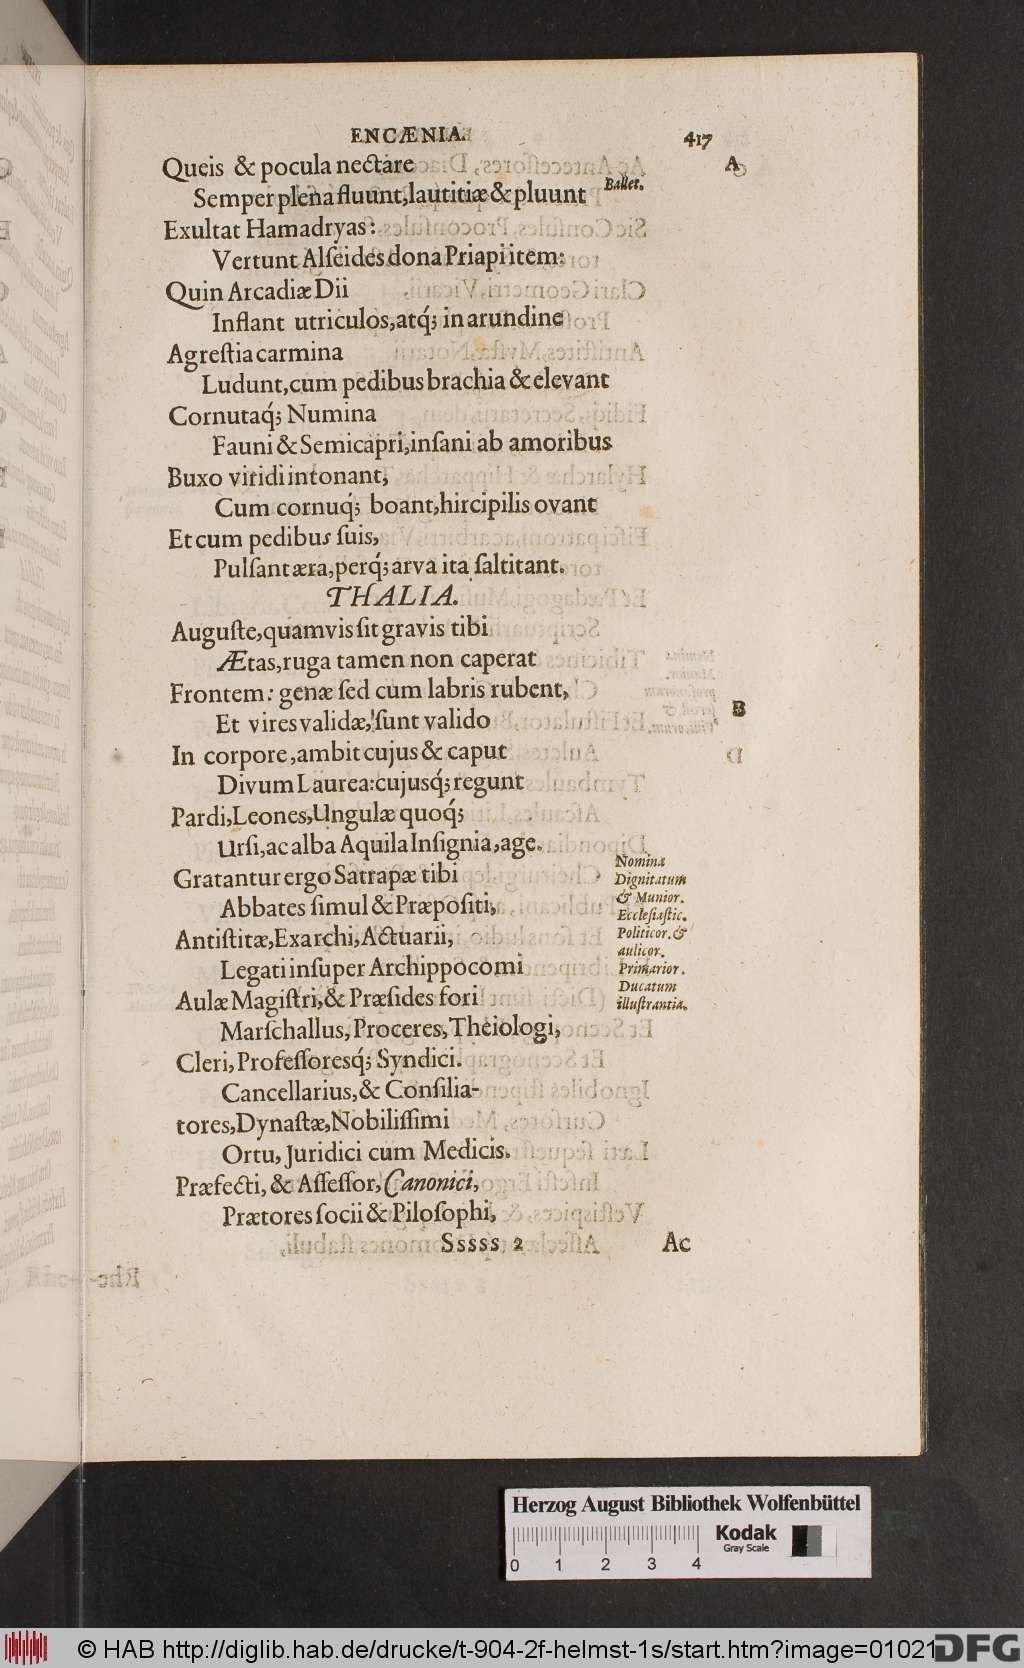 ENCÆNIA. 417
Queis & pocula nectare A
Semper plena fluunt, lautitiæ & pluunt Ballet.
Exultat Hamadryas:
Vertunt Alſeides dona Priapi item:
Quin Arcadiæ Dii
Inflant utriculos, atq́; in arundine
Agreſtia carmina
Ludunt, cum pedibus brachia & elevant
Cornutaq́; Numina
Fauni & Semicapri, inſani ab amoribus
Buxo viridi intonant,
Cum cornuq́; boant, hircipilis ovant
Et cum pedibus ſuis,
Pulſant æra, perq́; arva ita ſaltitant.
THALIA.
Auguſte, quamvis ſit gravis tibi
Ætas, ruga tamen non caperat
Frontem: genæ ſed cum labris rubent,
Et vires validæ, ſunt valido B
In corpore, ambit cujus & caput
Divum Laurea: cujusq́; regunt
Pardi, Leones, Ungulæ quoq́;
Urſi, ac alba Aquila Inſignia, age.
Gratantur ergo Satrapæ tibi
Abbates ſimul & Præpoſiti,
Antiſtitæ, Exarchi, Actuarii,
Legati inſuper Archippocomi
Aulæ Magiſtri, & Præſides fori
Marſchallus, Proceres, Theiologi,
Cleri, Profeſſoresq́; Syndici.
Cancellarius, & Conſilia-
tores, Dynaſtæ, Nobiliſſimi
Ortu, Juridici cum Medicis.
Præfecti, & Aſſeſſor, Canonici,
Prætores ſocii & Piloſophi,
Nomina
Dignitatum
& Munior.
Eccleſiaſtic.
Politicor. &
aulicor.
Primarior.
Ducatum
illuſtrantia.
Sssss 2 Ac
Herzog August Bibliothek Wolfenbüttel
Kodak
Gray Scale
0 1 2 3 4
© HAB http://diglib.hab.de/drucke/t-904-2f-helmst-1s/start.htm?image=01021
DFG